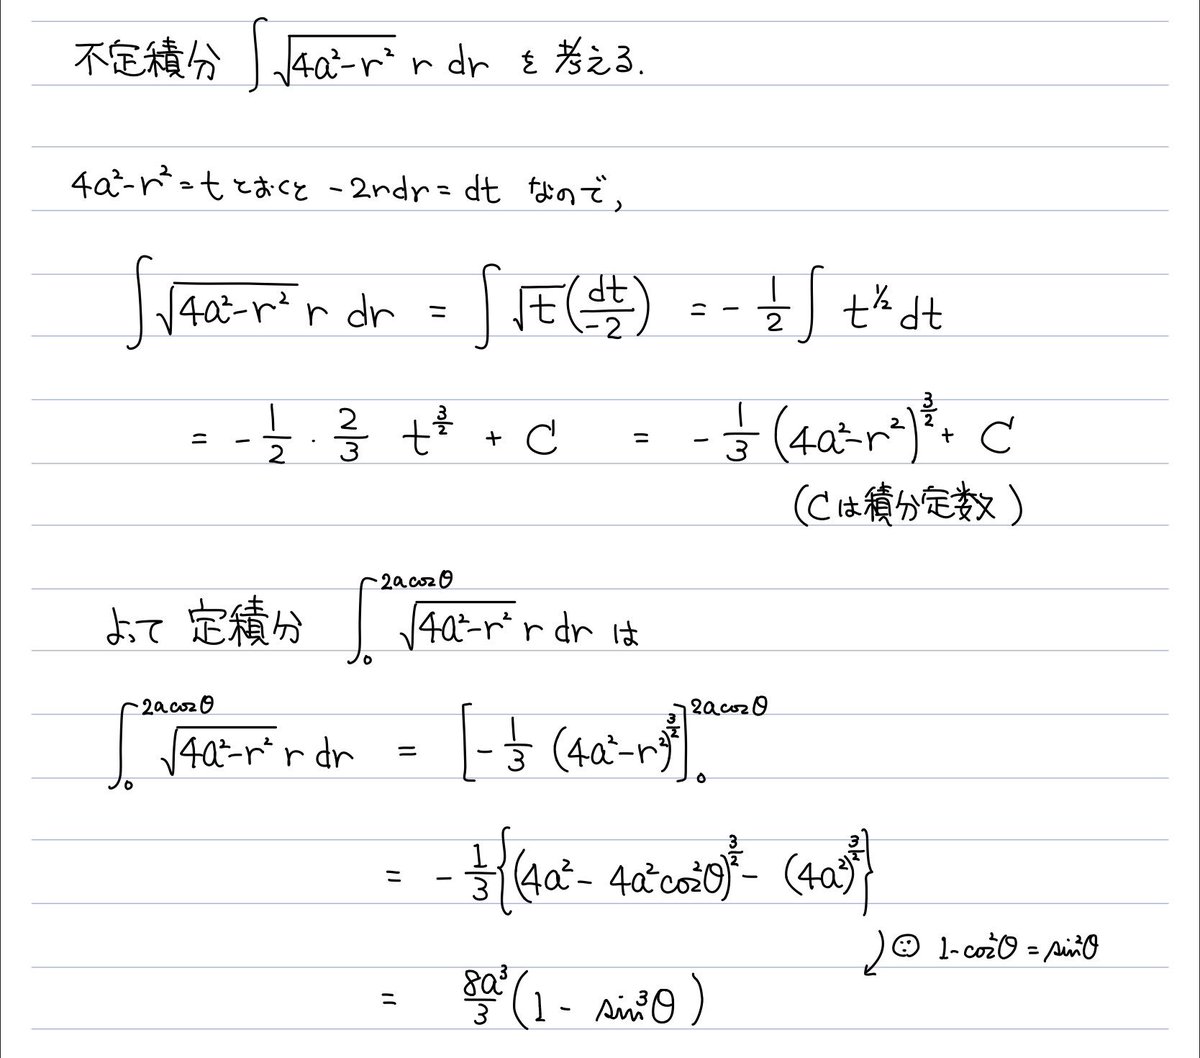 不定積分 ∫√(4a²-r²) r dr を考える.
4a²-r²=t とおくと -2rdr=dt なので,
∫√(4a²-r²) r dr = ∫√t (dt/-2) = -1/2 ∫ t^(1/2) dt
= -1/2 · 2/3 t^(3/2) + C = -1/3 (4a²-r²)^(3/2) + C
(Cは積分定数)
よって 定積分 ∫_0^(2a cosθ) √(4a²-r²) r dr は
∫_0^(2a cosθ) √(4a²-r²) r dr = [-1/3 (4a²-r²)^(3/2)]_0^(2a cosθ)
= -1/3 {(4a²-4a²cos²θ)^(3/2) - (4a²)^(3/2)}
↙ ∵ 1-cos²θ=sin²θ
= 8a³/3 (1-sin³θ)